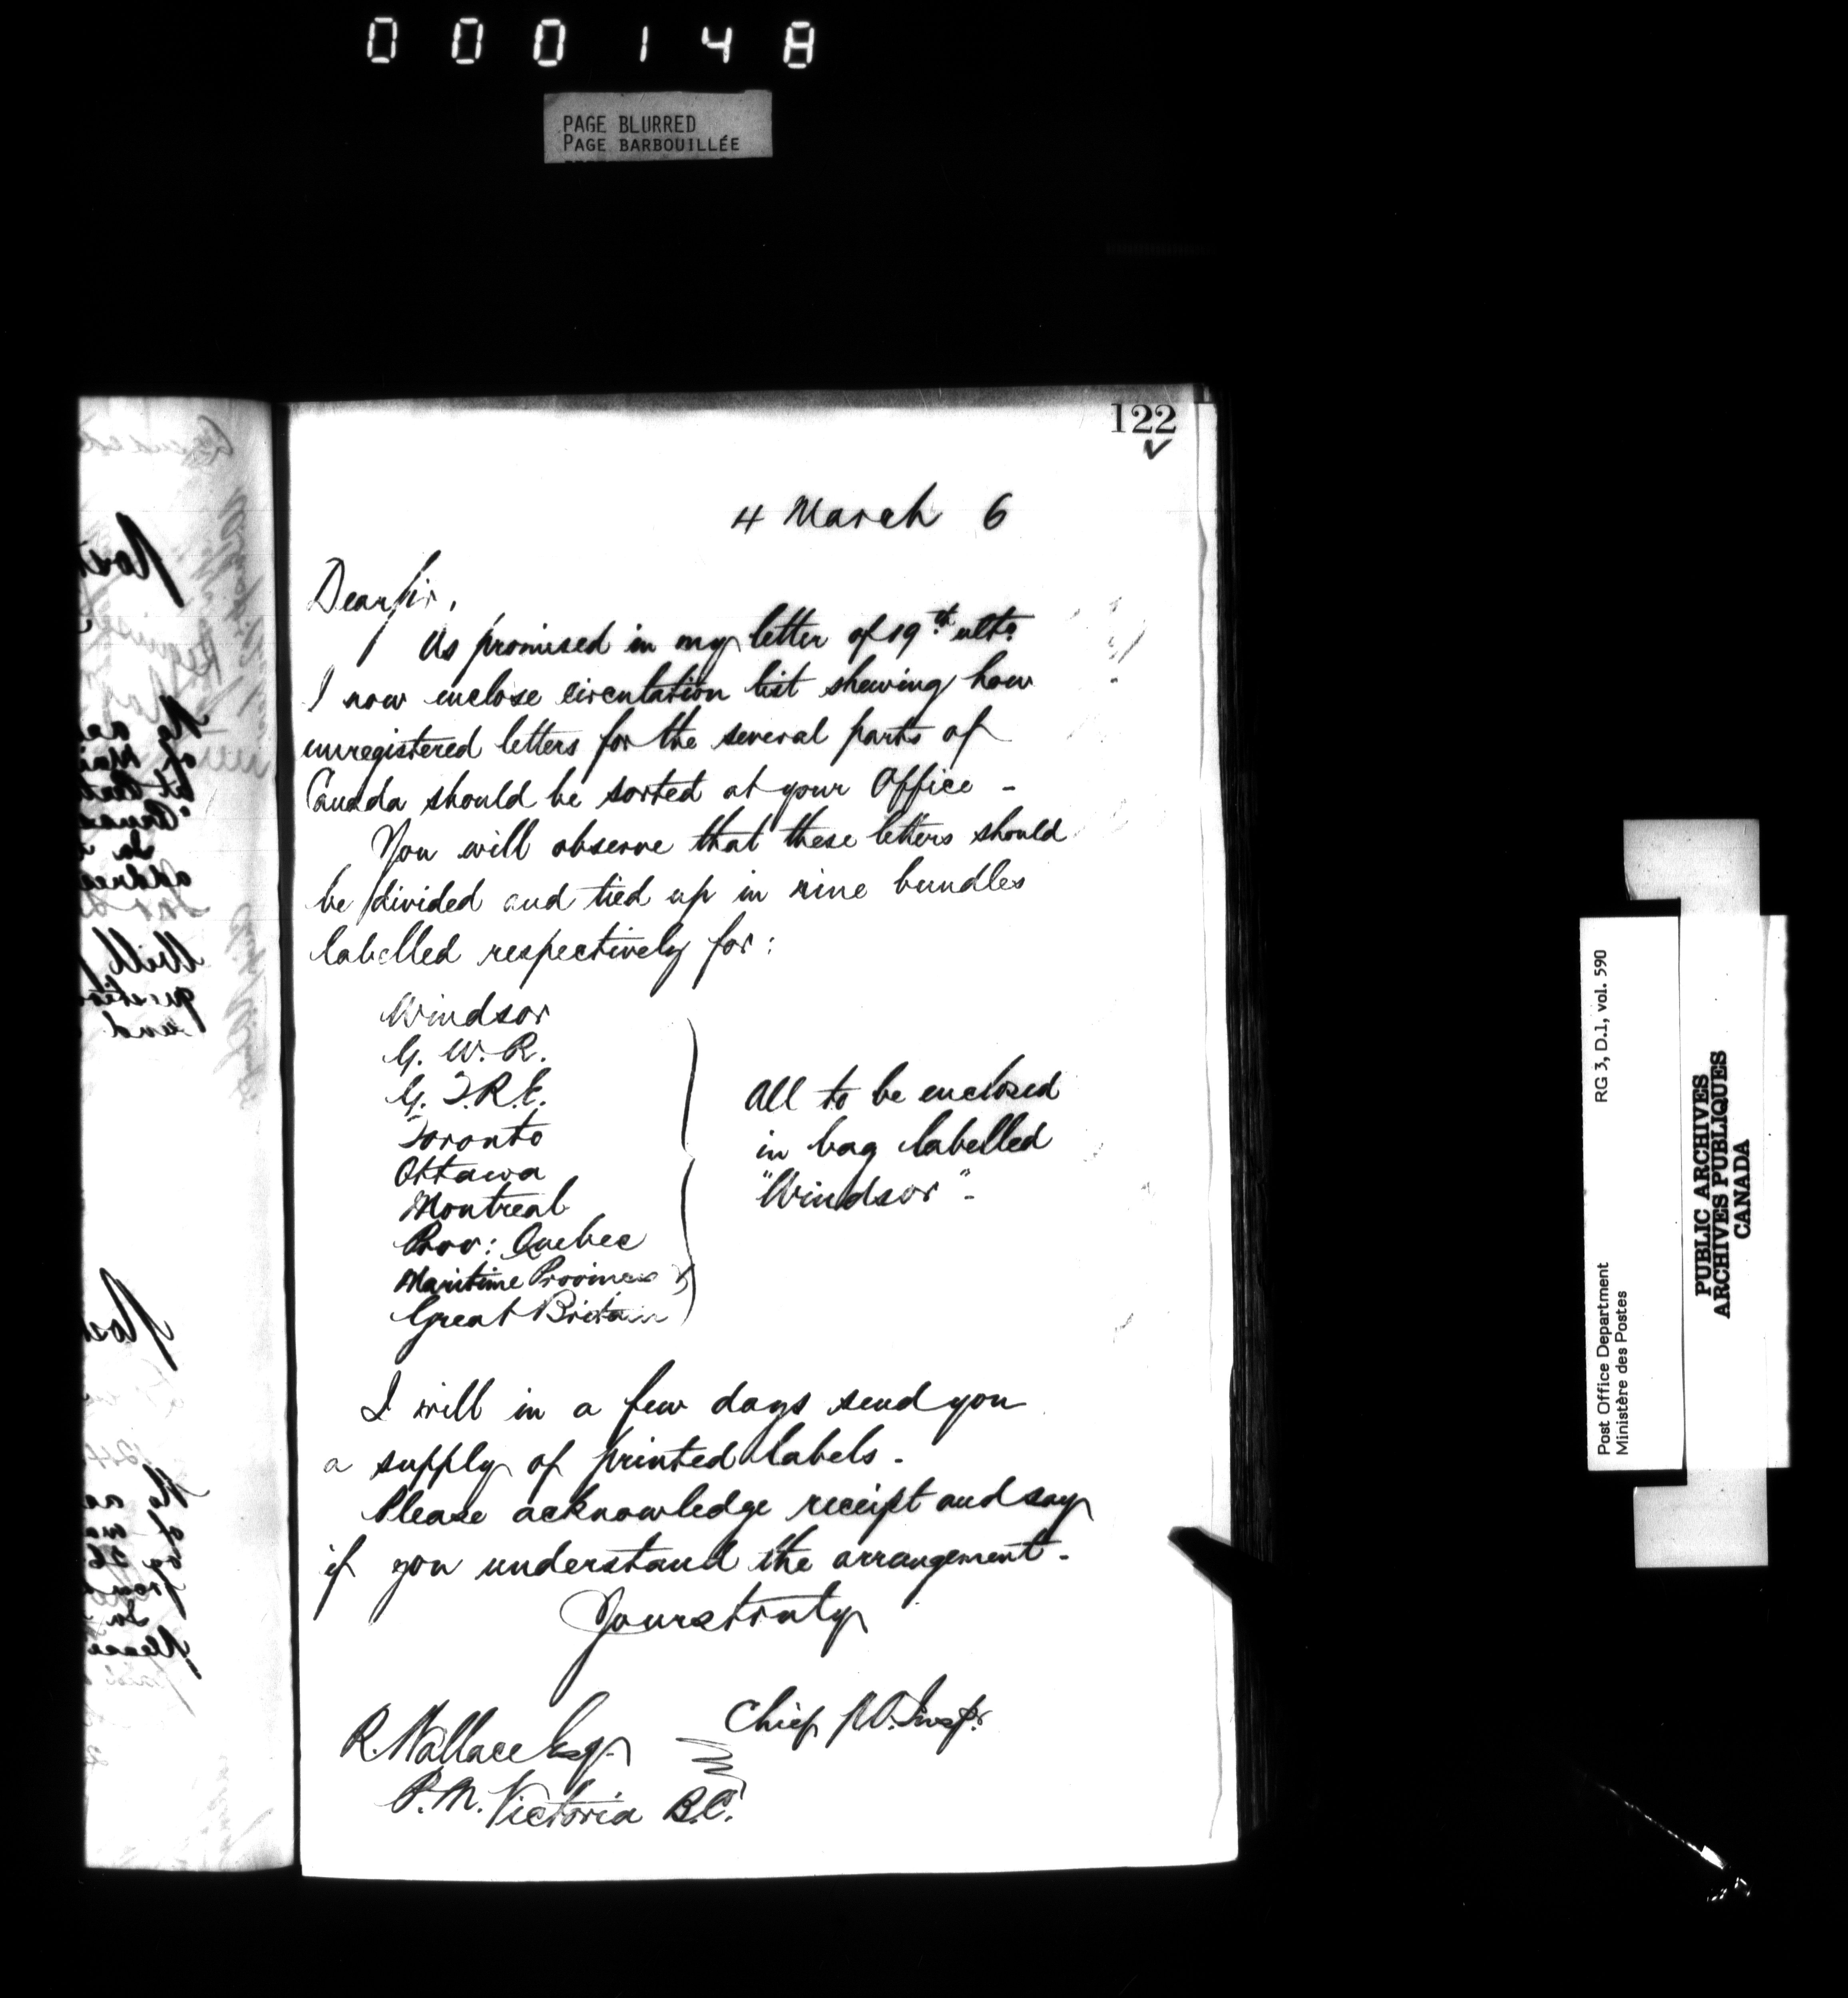 000148
PAGE BLURRED
PAGE BARBOUILLÉE
122
4 March 6
Dear Sir,
As promised in my letter of 19th ulto
I now enclose circulation list shewing how
unregistered letters for the several parts of
Canada should be sorted at your Office -
You will observe that these letters should
be divided and tied up in nine bundles
labelled respectively for:
Windsor
G. W. R.
G. T. R. E.
Toronto
Ottawa
Montreal
Prov: Quebec
Maritime Provinces &
Great Britain
All to be enclosed
in bag labelled
"Windsor" -
I will in a few days send you
a supply of printed labels.
Please acknowledge receipt and say
if you understand the arrangement -
Yours truly
Chief P.O. Inspr
R. Wallace Esq.
P.M. Victoria B.C.
Post Office Department
Ministère des Postes
RG 3, D.1, vol. 590
PUBLIC ARCHIVES
ARCHIVES PUBLIQUES
CANADA